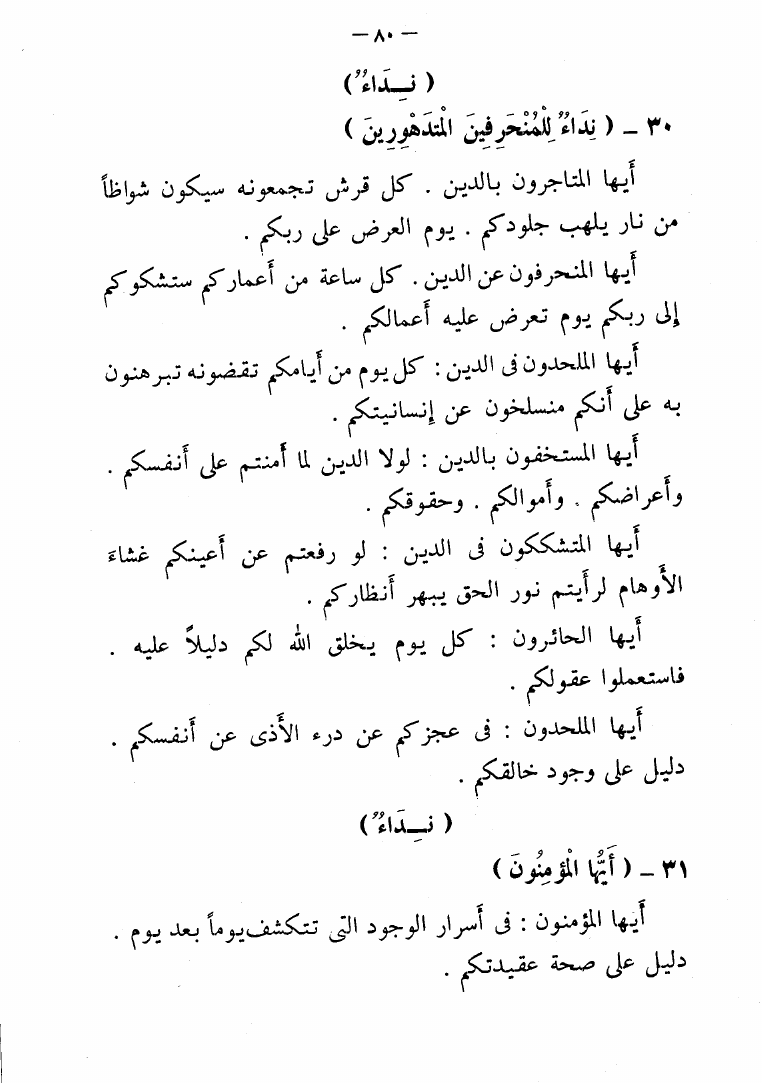 — ٨٠ —
( نِـدَاءٌ )
٣٠ – ( نِدَاءٌ لِلْمُنْحَرِفِينَ الْمُتَدَهْوِرِينَ )
أيها المتاجرون بالدين . كل قرش تجمعونه سيكون شواظاً
من نار يلهب جلودكم . يوم العرض على ربكم .
أيها المنحرفون عن الدين . كل ساعة من أعماركم ستشكوكم
إلى ربكم يوم تعرض عليه أعمالكم .
أيها الملحدون فى الدين : كل يوم من أيامكم تقضونه تبرهنون
به على أنكم منسلخون عن إنسانيتكم .
أيها المستخفون بالدين : لولا الدين لما أمنتم على أنفسكم .
وأعراضكم . وأموالكم . وحقوقكم .
أيها المتشككون فى الدين : لو رفعتم عن أعينكم غشاءَ
الأوهام لرأيتم نور الحق يبهر أنظاركم .
أيها الحائرون : كل يوم يخلق الله لكم دليلاً عليه .
فاستعملوا عقولكم .
أيها الملحدون : فى عجزكم عن درء الأذى عن أنفسكم .
دليل على وجود خالقكم .
( نِـدَاءٌ )
٣١ – ( أَيُّهَا الْمُؤْمِنُونَ )
أيها المؤمنون : فى أسرار الوجود التى تتكشف يوماً بعد يوم .
دليل على صحة عقيدتكم .